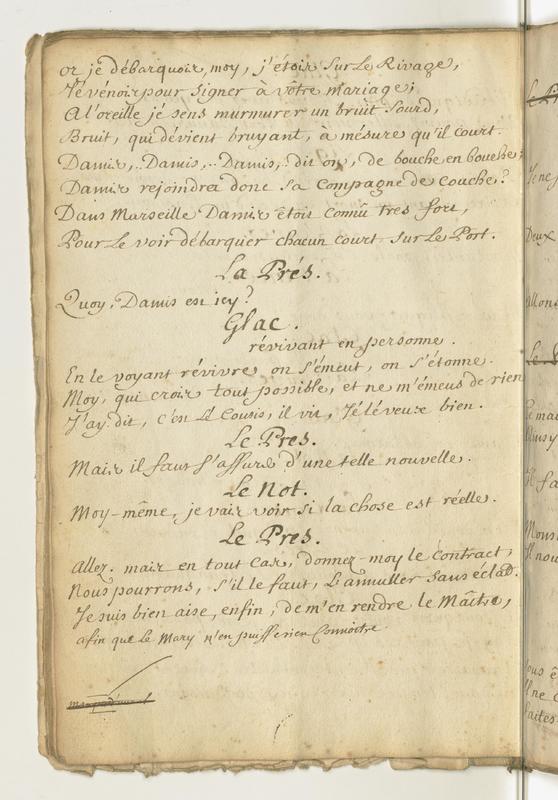 or je débarquois, moy, j'étois sur Le Rivage,
Je vénois pour signer à vôtre mariage;
A l'oreille je sens murmurer un bruit sourd,
Bruit, qui dévient bruyant, à mésure qu'il court.
Damis,.. Damis,.. Damis,.. dit on, de bouche en bouche;
Damis rejoindra donc sa Compagne de Couche?
Dans Marseille Damis étoit connû tres fort,
Pour Le voir débarquer chacun court sur Le Port.
La Prés.
Quoy, Damis est icy?
Glac.
révivant en personne.
En le voyant révivre on s'émeut, on s'étonne.
Moy, qui crois tout possible, et ne m'émeus de rien
J'ay dit, c'est Cousis, il vit, Je lé veux bien.
Le Pres.
Mais il faut s'assurer d'une telle nouvelle.
Le Not.
Moy-même, je vais voir si la chose est réelle.
Le Pres.
Allez. mais en tout Cas, donnez-moy le Contract,
Nous pourrons, s'il le faut, L'annuller sans éclat.
Je suis bien aise, enfin, de m'en rendre le Maître,
afin que Le Mary n'en puisse rien Connoitre
Deux